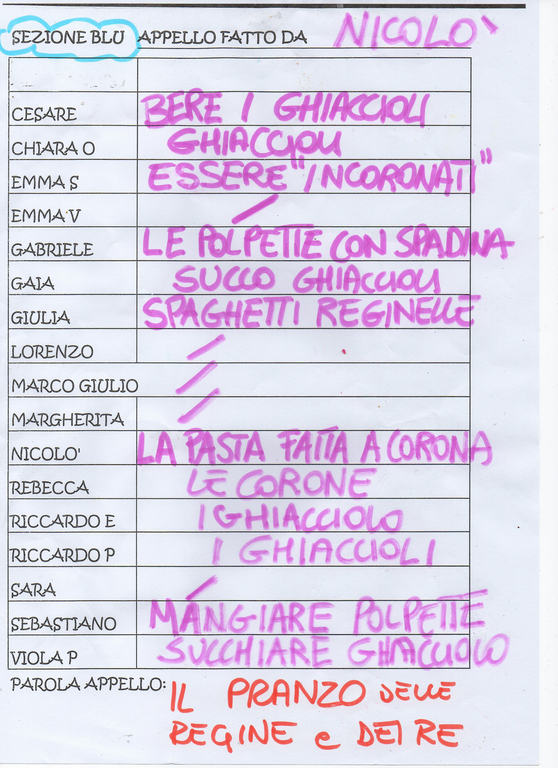 SEZIONE BLU APPELLO FATTO DA NICOLO'
CESARE BERE I GHIACCIOLI
CHIARA O GHIACCIOLI
EMMA S ESSERE "INCORONATI"
EMMA V /
GABRIELE LE POLPETTE CON SPADINA
GAIA SUCCO GHIACCIOLI
GIULIA SPAGHETTI REGINELLE
LORENZO /
MARCO GIULIO /
MARGHERITA /
NICOLO' LA PASTA FATTA A CORONA
REBECCA LE CORONE
RICCARDO E I GHIACCIOLO
RICCARDO P I GHIACCIOLI
SARA /
SEBASTIANO MANGIARE POLPETTE
VIOLA P SUCCHIARE GHACCIOLO
PAROLA APPELLO: IL PRANZO DELLE
REGINE e DEI RE